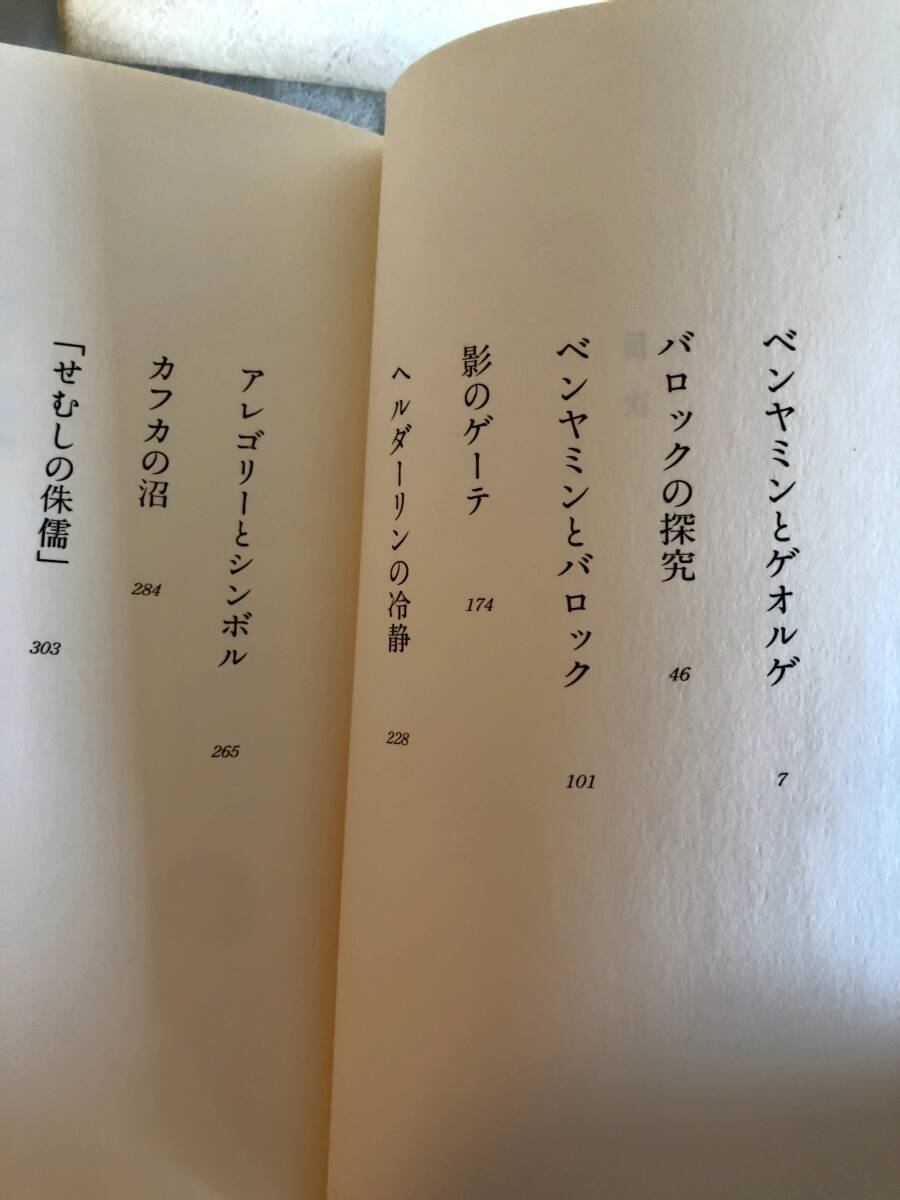 ベンヤミンとゲオルゲ 7
バロックの探究 46
ベンヤミンとバロック 101
影のゲーテ 174
ヘルダーリンの冷静 228
アレゴリーとシンボル 265
カフカの沼 284
「せむしの侏儒」 303